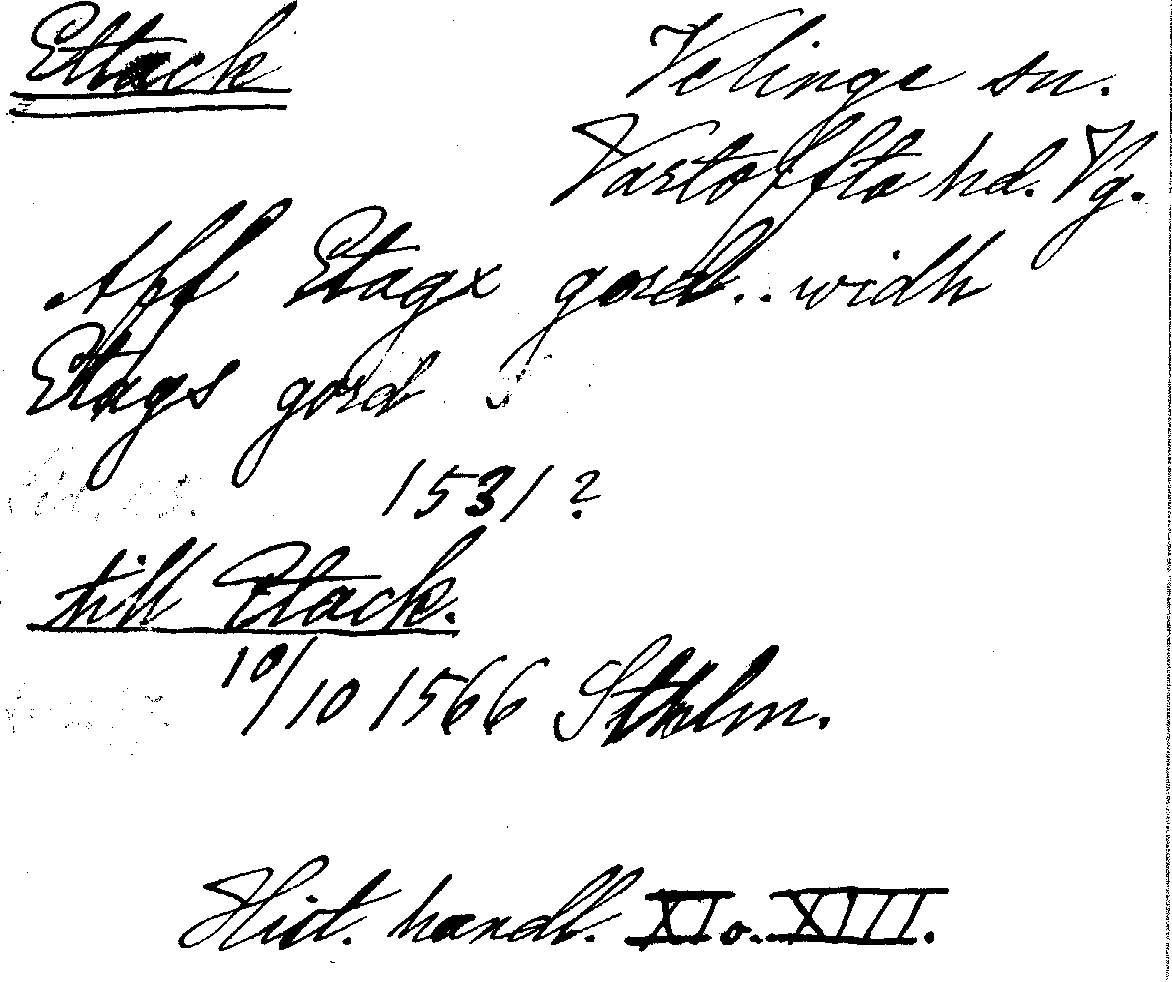 Ettack
Velinge sn.
Vartofta hd. Vg.
Aff Etagx gord.. widh
Etags gord
1531?
till Etack.
10/10 1566 Sthlm.
Hist. handl. XI o. XIII.